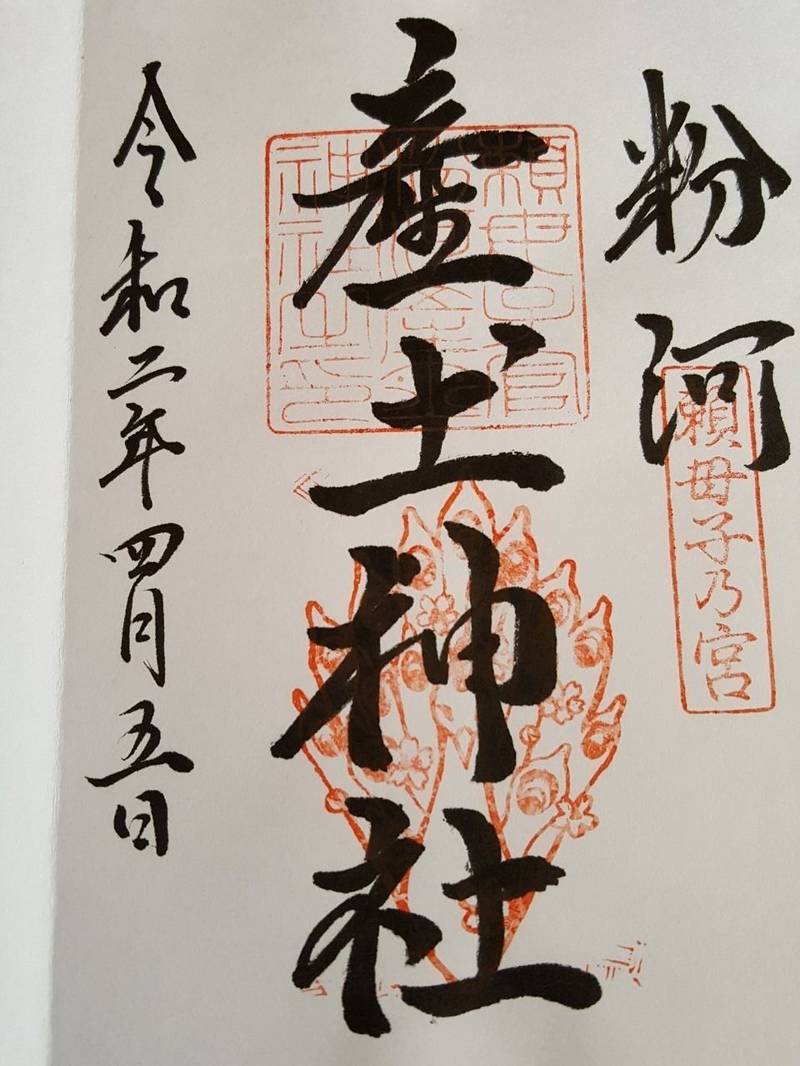 粉河
頼母子乃宮
産土神社
令和二年四月五日